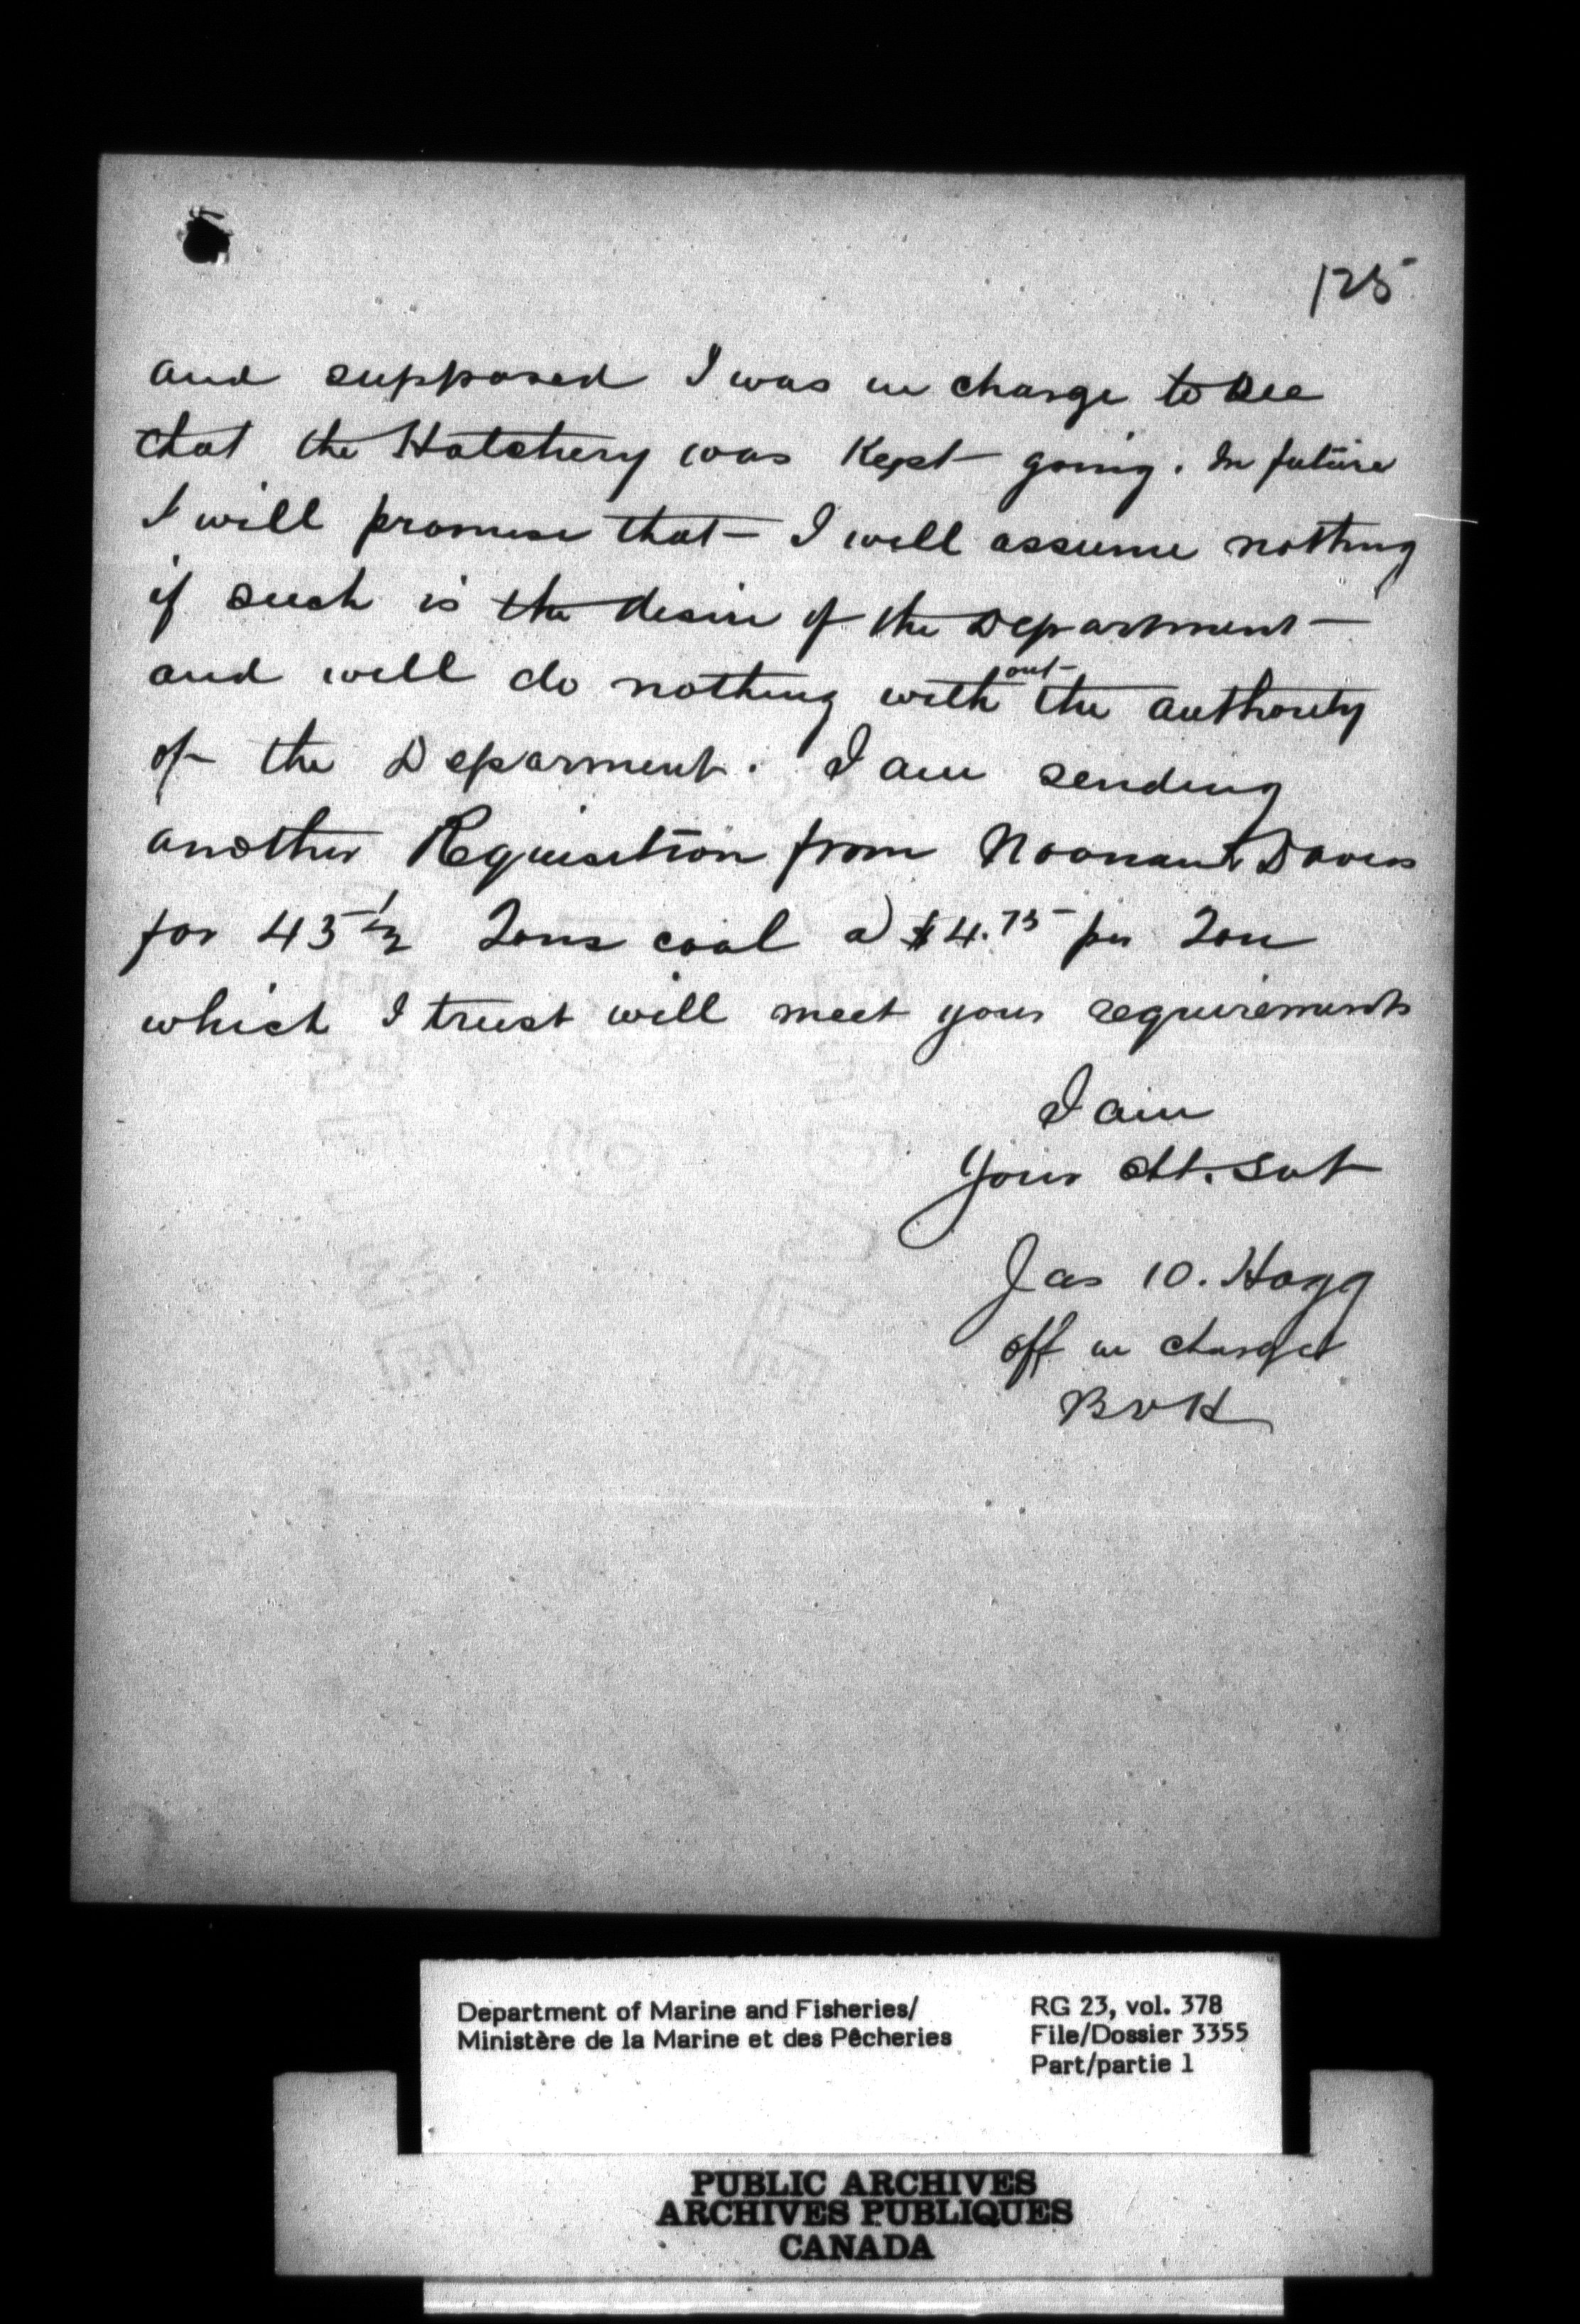 125
and supposed I was in charge to see
that the Hatchery was Kept going. In future
I will promise that I will assume nothing
if such is the desire of the Department
and will do nothing without the authority
of the Deparment. I am sending
another Requisition from Noonan & Davies
for 43 1/2 Tons coal @ $4.75 per Ton
which I trust will meet your requirements
I am
Your obt. Svt
Jas W. Hogg
off in charge
B v H
Department of Marine and Fisheries/
Ministère de la Marine et des Pêcheries
RG 23, vol. 378
File/Dossier 3355
Part/partie 1
PUBLIC ARCHIVES
ARCHIVES PUBLIQUES
CANADA